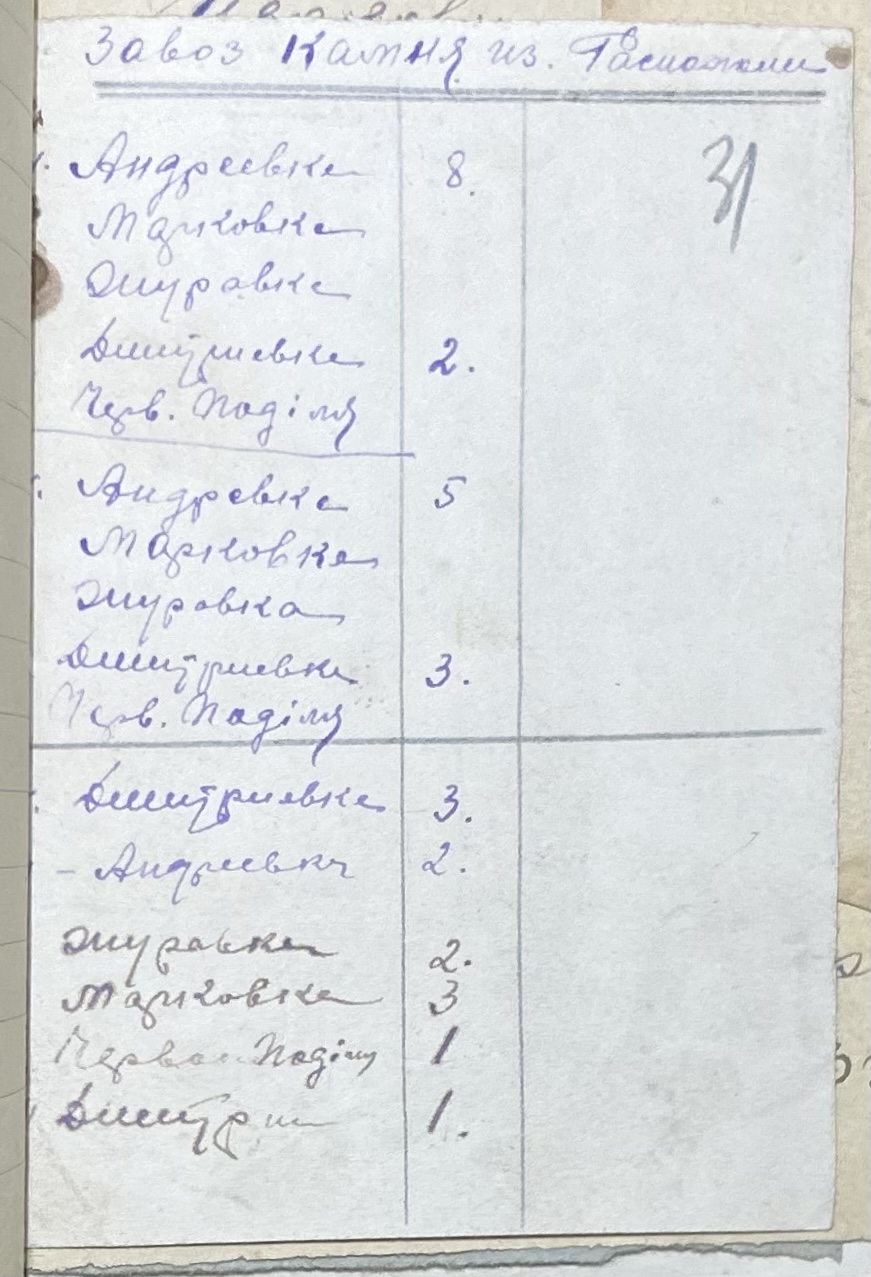 Завоз Камня из.
31
Андреевка 8.
Марковка
Журавка
Дмитриевка 2.
Черв. Поділля
Андревка 5
Марковка
Журовка
Дмитриевка 3.
Черв. Поділля
Дмитриевка 3.
- Андриевка 2.
Журавка 2.
Марковка 3
Поділля 1
Дмитри 1.